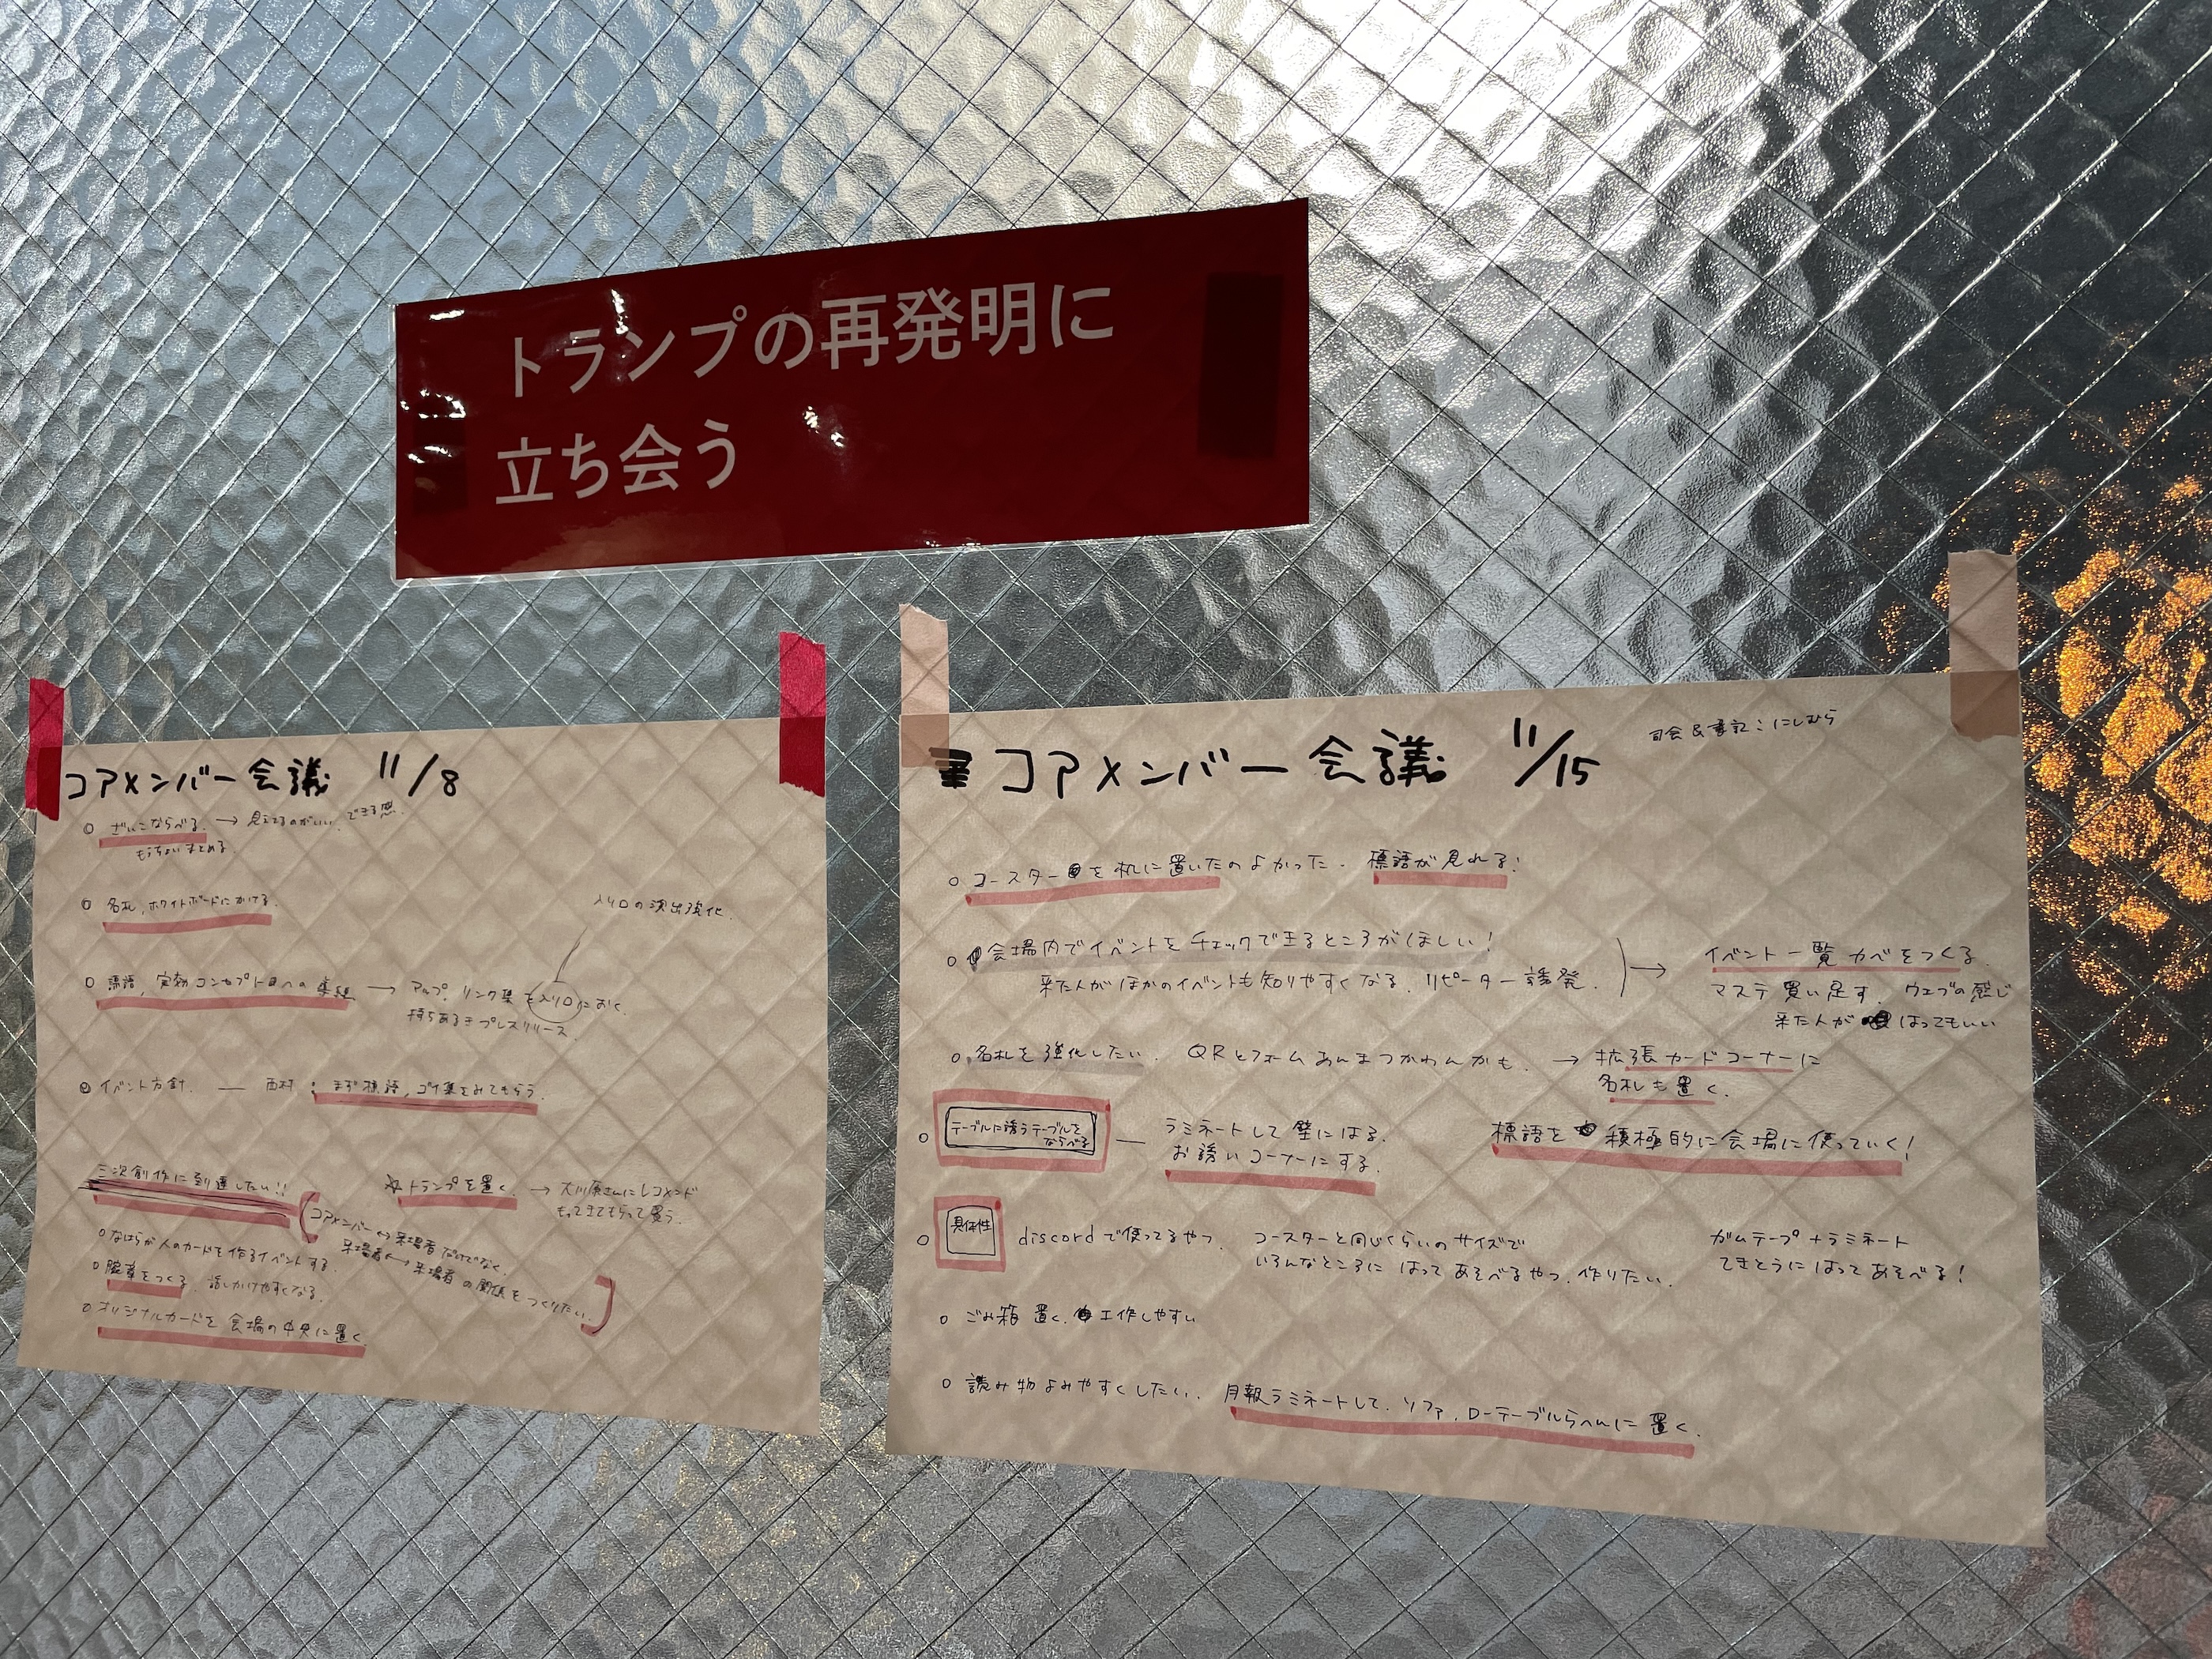 トランプの再発明に
立ち会う
コアメンバー会議 11/8
ざいこならべる。→ 見えてるのがいい、できる感
もうちょいまとめる
名札、ホワイトボードにかける。
入り口の演出強化。
標語、実効コンセプト日への集組 → アルプ、リンク集を入り口におく。
持ちあるきプレスリリース。
イベント方針. — 西村: まず標語, 集をみてもらう.
三次創作に到達したい!!
コアメンバー↔来場者だけでなく、
来場者↔来場者の関係をつくりたい。
☆トランプを置く。→ 大川原さんにレコメンド
もってきてもらって買う。
人のカードを作るイベントする.
腕章をつくる 話しかけやすくなる.
オリジナルカードを会場の中央に置く
コアメンバー会議 11/15
司会&書記:にしむら
コースターを机に置いたのよかった. 標語が見れる!
会場内でイベントをチェックできるところがほしい!
来た人がほかのイベントも知りやすくなる. リピーター誘発.
→ イベント一覧カベをつくる.
マステ買い足す. ウェブの感じ
来た人がはってもいい
名札を強化したい. QRとフォームあんまつかわんかも. → 拡張カードコーナーに
名札も置く.
テーブルに誘うテーブルを
ならべる
— ラミネートして壁にはる.
お誘いコーナーにする.
標語を積極的に会場に使っていく!
具体性
discordで使ってるやつ. コースターと同じくらいのサイズで
いろんなところにはってあそべるやつ. 作りたい.
ガムテープ+ラミネート
てきとうにはってあそべる!
ごみ箱 置く. 工作しやすい
読み物よみやすくしたい. 月報ラミネートして. ソファ, ローテーブルらへんに置く.